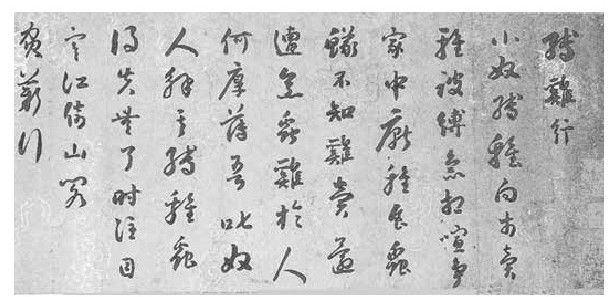 縛雞行
小奴縛鷄向市賣
鷄被縛急相喧爭
家中厭鷄食蟲
蟻不知雞賣還
遭烹蟲雞於人
何厚薄吾叱奴
人解其縛鷄蟲
得失無了時注目
寒江倚山閣
負薪行